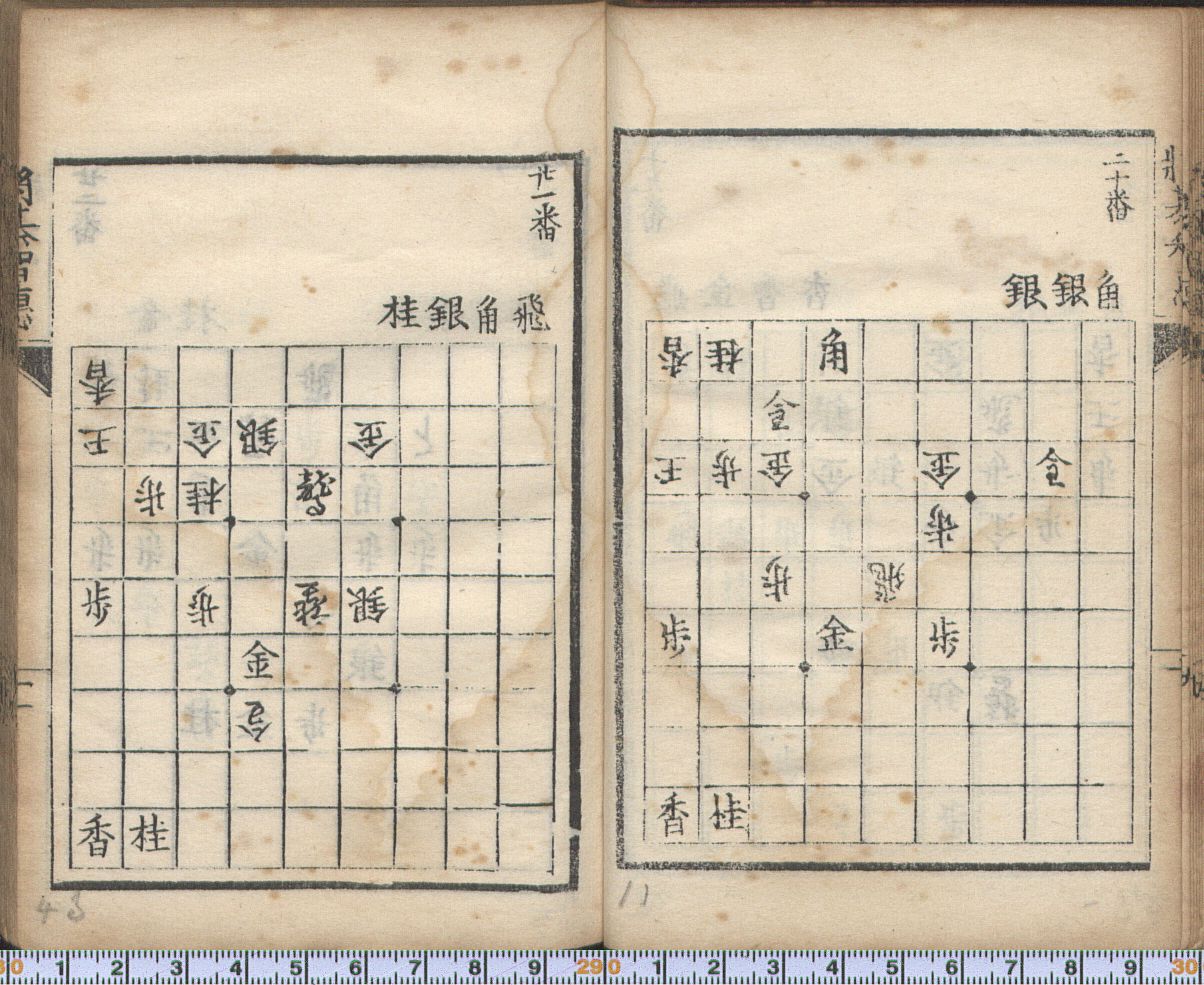 二十番
角銀銀
角 桂 香
金 金 歩 王
歩
飛 歩
歩 金 歩
桂 香
九
11
廿一番
飛角銀桂
香
金 銀 金 王
桂 歩
銀 歩 歩
金
桂 香
43
30 1 2 3 4 5 6 7 8 9 29 0 1 2 3 4 5 6 7 8 9 30